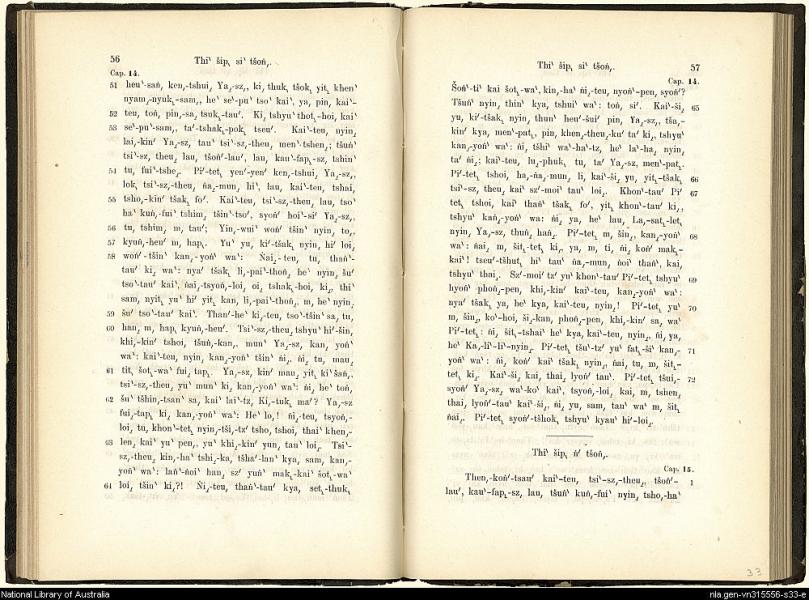 56 Thiˋ šip˛ siˊ tšoń˛.
Cap. 14.
51 heuˋ-sań, ken˛-tshui, Ya˛-sz˛, ki, thuk, tšok˛ yit˛ khenˊ
nyam˛-nyuk˛-sam˛, heˋ seˋ-puˋ tsoˋ kaiˋ, ya, pin, kaiˋ-
52 teu, toń, pin˛-sa, tsuk˛-tauˊ. Ki, tshyuˋ thot˛-hoi, kaiˋ
53 seˋ-puˋ-sam˛, taˊ-tshak˛-pok, tseuˊ. Kaiˋ-teu, nyin˛
lai˛-kinˊ Ya˛-sz˛, tauˋ tsiˋ-sz˛-theu, menˋ-tshen˛; tšuńˋ
tsiˋ-sz˛-theu, lau, tšońˊ-lauˊ, lau, kauˋ-fap˛-sz, tshin
54 tu, fuiˋ-tshe˛. Piˊ-tet˛ yenˊ-yenˊ ken˛-tshui, Ya˛-sz˛,
lok˛ tsiˋ-sz˛-theu, ńa˛-mun, hiˋ, lau, kaiˋ-teu, tshai,
55 tsho˛-kinˊ tšak, foˊ. Kaiˋ-teu, tsiˋ-sz˛-theu, lau, tsoˋ
haˋ kuń, fuiˋ tshim, tšinˋ-tsoˊ, syońˊ hoiˋ-siˊ Ya˛-sz˛,
56 tu, tshim, m, tauˊ; Yin˛-wuiˋ wońˊ tšinˋ nyin, to˛,
57 kyuń˛-heuˊ m, hap˛. Yuˋ yu, kiˊ-tšak, nyin, hiˊ loi,
58 wońˊ-tšinˋ kan˛-yońˋ waˋ: Ńai˛-teu, tu, thańˋ-
tauˊ ki, waˋ: nyaˊ tšak, li˛-pai-thoń, heˋ nyin, šuˊ
tsoˋ-tauˊ kaiˋ, ńai˛-tsyoń˛-loi, oi, tshak˛-hoi, ki˛, thiˋ
sam, nyit˛ yuˋ hiˊ yit, kan, li˛-pai-thoń, m, heˋ nyin,
59 šuˊ tsoˋ-tauˊ kaiˋ. Thanˊ-heˋ ki˛-teu, tsoˋ-tšinˋ sa, tu,
60 han, m, hap˛ kyuń˛-heuˊ. Tsaiˋ-sz˛-theu, tshyuˋ hiˊ-šin,
khi˛-kinˊ tshoi, tšuń˛-kan˛, munˋ Ya˛-sz, kan, yońˋ
waˋ: kaiˋ-teu, nyin, kan˛-yońˋ tšinˋ ńi˛, ńi, tu, mau˛
61 tit˛ šot˛-wa fui˛ tap˛. Ya˛-sz˛ kinˊ mau˛ yit˛ kiˋ šań˛.
tsi-sz˛-theu, yuˋ munˋ ki, kan˛-yońˋ waˋ: ńi, heˋ toń,
62 šuˋ tšhin˛-tsanˋ sa, kaiˋ lai-tz, Ki˛-tuk, maˊ? Ya˛-sz
fui˛-tap˛ ki, kan˛-yońˋ waˋ: He lo,! ńi˛-teu, tsyoń˛-
loi, tu, khonˋ-tet, nyin˛-tši˛-tzˊ tsho, tshoi, thaiˊ khen˛-
63 len, kaiˋ yuˋ pen˛, yuˋ khi˛-kinˊ yun, tauˋ loi˛. Tsiˋ-
sz˛-theu, kin˛-haˋ tshi˛-ka, tšhaˊ-lanˋ kya, sam, kan˛-
yońˋ waˋ: lańˋ-ńoiˋ han, szˊ yuńˋ mak˛-kaiˋ šot˛-waˋ
64 loi, tšinˋ ki˛?! Ńi˛-teu, thańˋ-tauˊ kya, set˛-thuk˛
Thiˋ šip, siˋ tšoń˛. 57
Cap. 14.
Šońˋ-tiˋ kai šot˛-wa˛, kin˛-haˋ ńi˛-teu, nyońˋ-pen, syońˊ?
Tšuńˋ nyin, thinˋ kya, tshui waˋ: toń, siˊ. Kaiˋ-ši˛ 65
yu, kiˊ-tšak, nyin, thunˋ heuˊ-šuiˊ pin, Ya˛-sz˛, tšu˛-
kinˊ kya, menˋ-pat˛ pin, khen˛-theu˛-kuˊ taˊ ki˛, tshyuˋ
kan˛-yońˋ waˋ: ńi, tšhiˋ waˋ-haˋ-tz, heˋ laˋ-ha, nyin,
taˊ ńi˛; kaiˋ-teu, lu˛-phuk, tu, taˊ Ya˛-sz, menˋ-pat˛.
Piˊ-tet˛ tshoi, ha˛-ńa˛-mun, li, kaiˋ-ši˛ yu, yit˛-tšak˛ 66
tsiˋ-sz˛-theu, kaiˋ szˊ-moiˋ tauˋ loi˛. Khonˋ-tauˊ Piˊ 67
tet˛ tshoi, kaiˋ thańˋ tšak, foˊ, yit˛ khonˋ-tauˊ ki˛,
tshyuˋ kań˛-yońˋ wa: ńi, ya, heˋ lau, La˛-sat˛-let˛
nyin, Ya˛-sz, thuń, hań˛. Piˊ-tet˛ m, šin˛, kan˛-yońˋ 68
waˋ: ńai, m, šit˛-tet˛ ki˛, ya, m, ti, ńi, końˊ mak˛-
kaiˋ! tseuˊ-tšhut˛ hiˋ tauˋ ńa˛-mun, ńoiˋ thańˋ, kai,
tshyuˋ thai˛. Szˊ-moiˊ tzˊ yuˋ khon-tauˊ Piˊ-tet, tshyuˋ 69
hyońˋ phoń˛-pen, khi˛-kinˊ kaiˋ-teu, kan˛-yońˋ waˋ:
nyaˊ tšak, ya, heˋ kya, kaiˋ-teu, nyin˛! Piˊ-tet˛ yuˊ 70
m, šin˛, koˋ-hoi, ši˛-kan, phoń˛-pen, khi˛-kinˊ sa, waˋ
Piˊ-tet˛: ńi, šit˛-tshaiˋ heˋ kya, kaiˋ-teu, nyin˛, ńi, ya,
heˋ Ka˛-liˋ-liˋ-nyin˛. Piˊ-tet˛ tšuˋ-tzˊ yuˋ fat˛-šiˋ kan˛- 71
yońˋ waˋ: ńi, końˊ kaiˋ tšak, nyin˛, ńai, tu, m, šit˛-
tet˛ ki˛. Kaiˋ-ši˛ kai, thai, lyońˊ tauˊ. Piˊ-tet˛ tšui˛- 72
syońˊ Ya˛-sz˛ waˋ-koˋ kaiˋ, tsyoń˛-loi, kai, m, tshen,
thai, lyońˊ-tauˊ kaiˋ-ši˛, ńi, yu, sam, tanˋ waˋ m, šit˛
ńai˛. Piˊ-tet˛ syońˊ-tšhok, tshyuˋ kyauˊ hiˊ-loi˛.
Thiˋ šip, ńˊ tšoń˛.
Cap. 15.
Then˛-końˊ-tsauˊ kaiˋ-teu, tsiˋ-sz˛-theu˛, tšońˊ- 1
lauˊ, kauˋ-fap˛-sz, lau, tšuńˋ kuń˛-fuiˋ nyin, tsho˛-haˋ
33
National Library of Australia
nla.gen-vn315556-s33-e